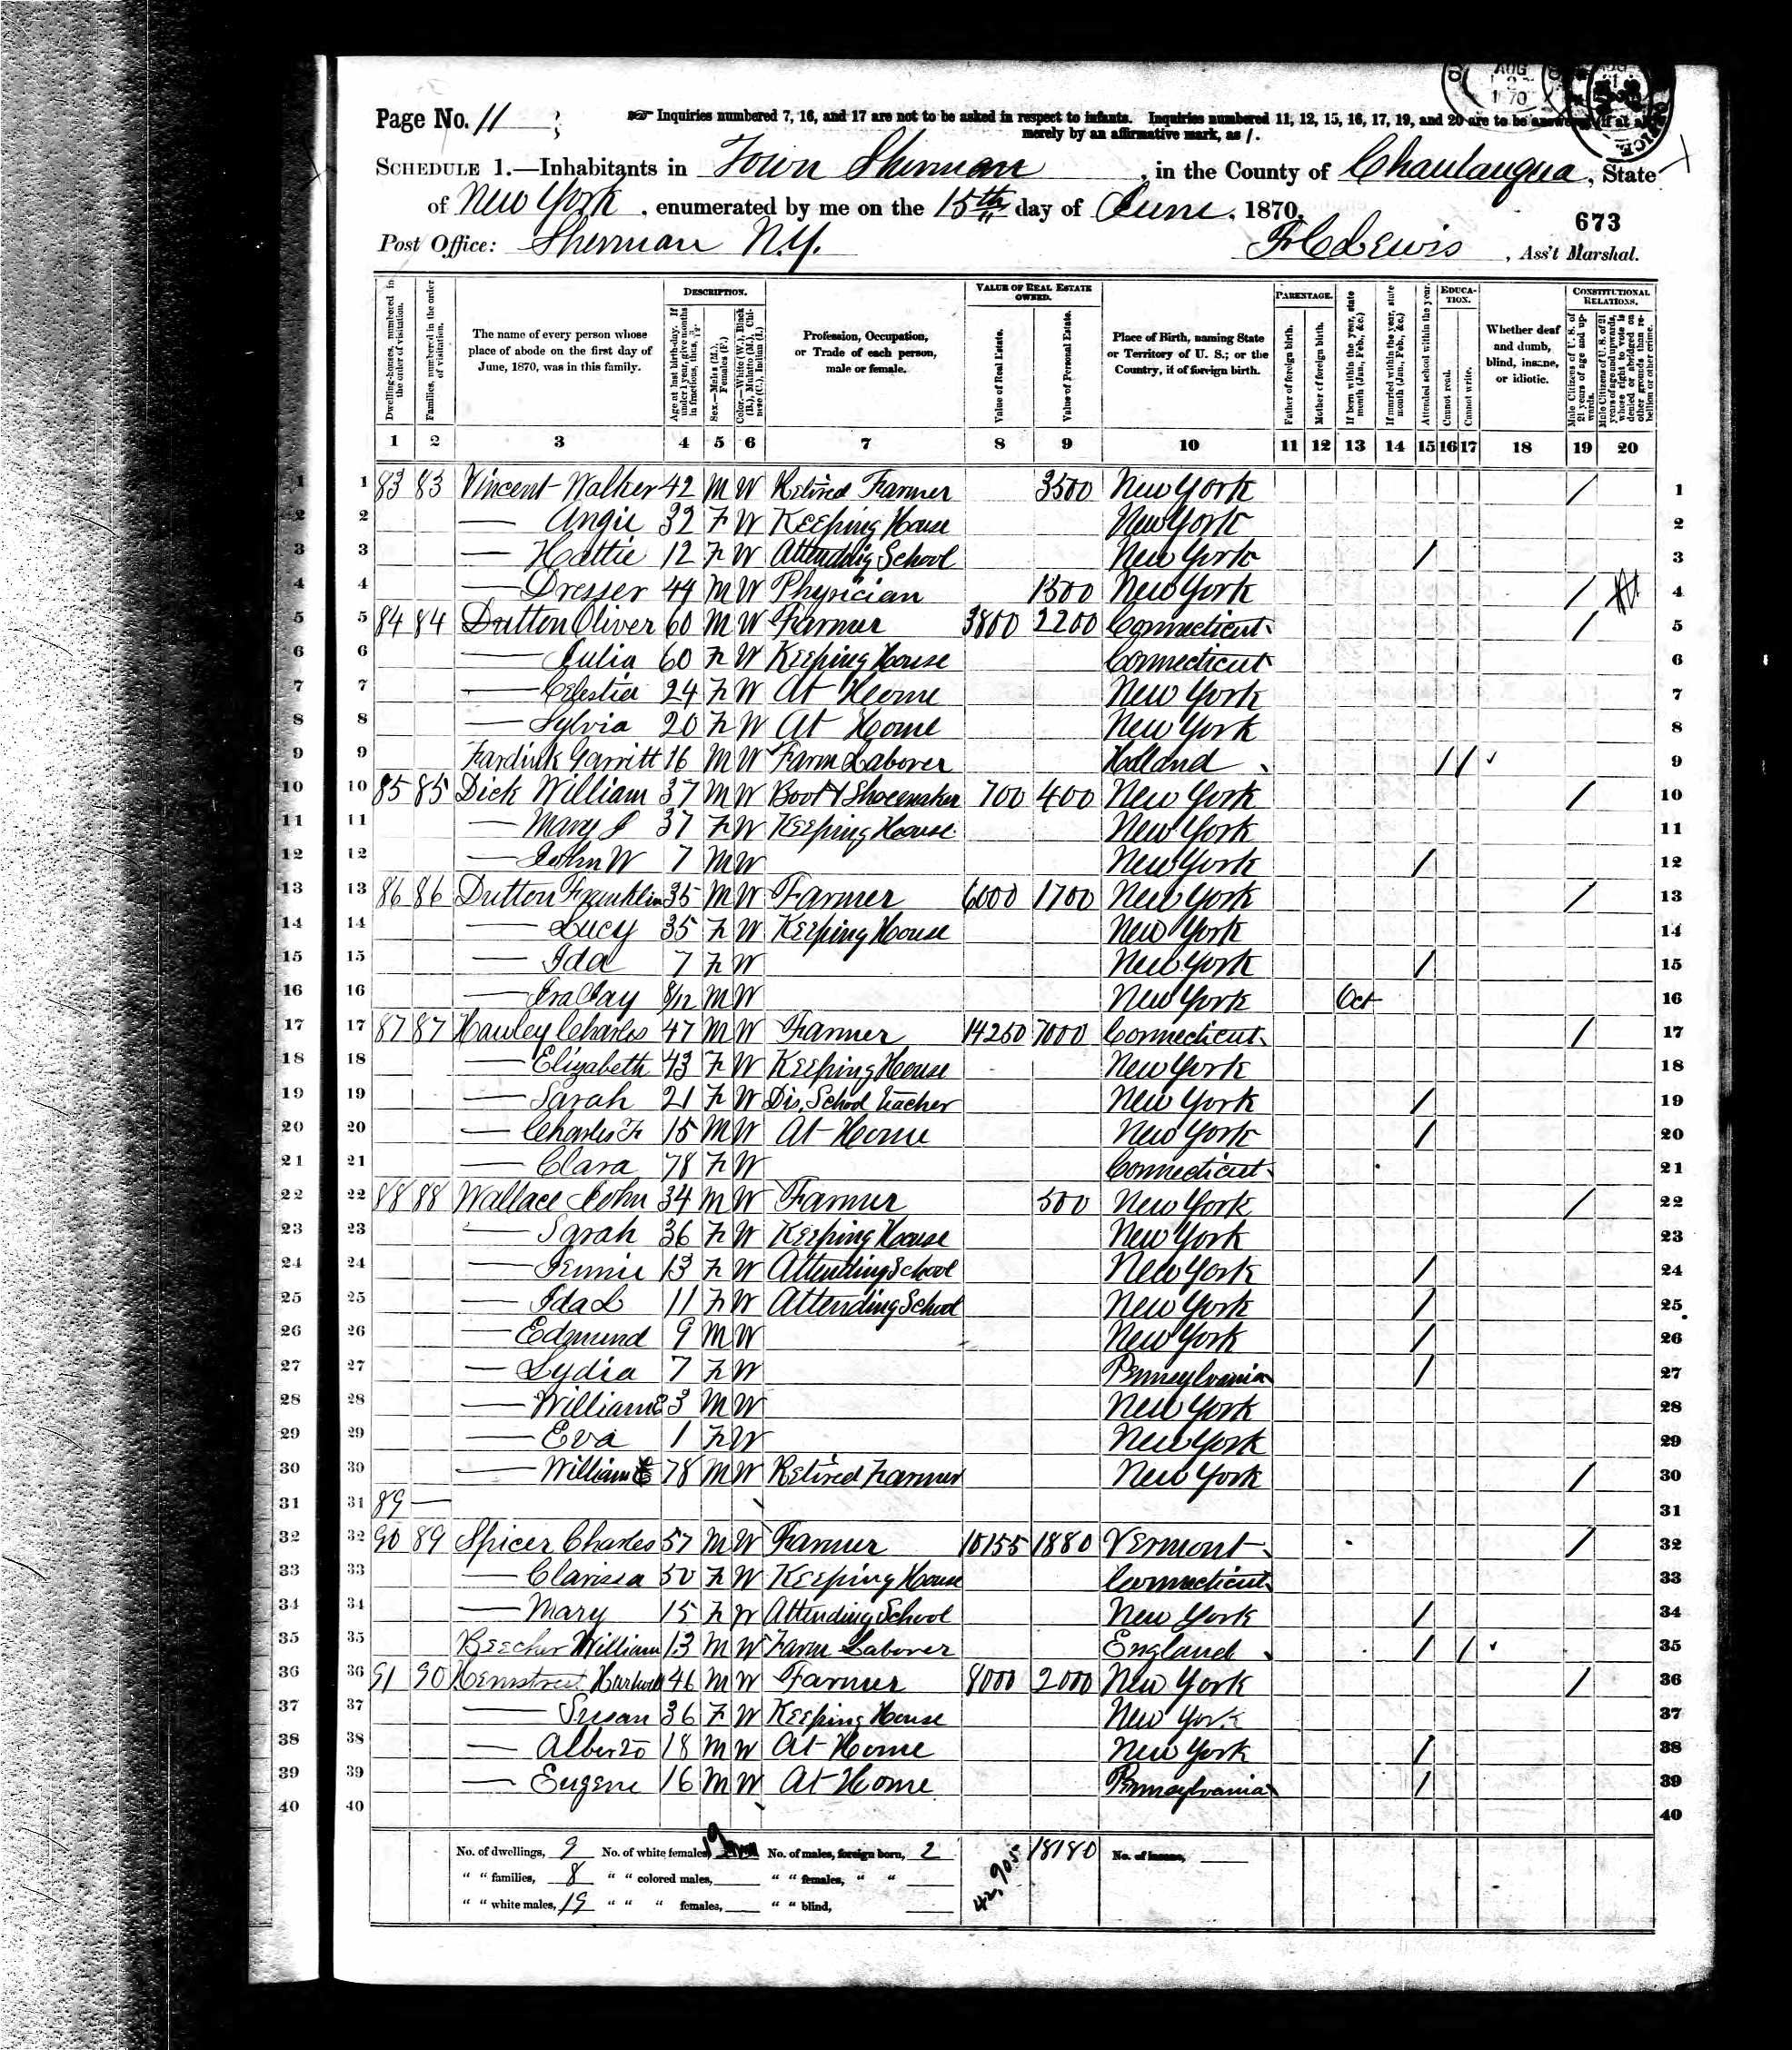 Page No. 11
Inquiries numbered 7, 16, and 17 are not to be asked in respect to infants. Inquiries numbered 11, 12, 15, 16, 17, 19, and 20 are to be answered (if at all)
merely by an affirmative mark, as /.
SCHEDULE 1.—Inhabitants in Town Sherman, in the County of Chautauqua, State
of New York, enumerated by me on the 15th day of June, 1870.
673
Post Office: Sherman N.Y. Lewis, Ass't Marshal.
Dwelling-houses, numbered in the order of visitation.
Families, numbered in the order of visitation.
The name of every person whose place of abode on the first day of June, 1870, was in this family.
DESCRIPTION.
Age at last birth-day. If under 1 year, give months in fractions, thus,
Sex.—Males (M.), Females (F.)
Color.—White (W.), Black (B.), Mulatto (M.), Chinese (C.), Indian (I.)
Profession, Occupation, or Trade of each person, male or female.
VALUE OF REAL ESTATE OWNED.
Value of Real Estate.
Value of Personal Estate.
Place of Birth, naming State or Territory of U. S.; or the Country, if of foreign birth.
PARENTAGE.
Father of foreign birth.
Mother of foreign birth.
If born within the year, state month (Jan., Feb., &c.)
If married within the year, state month (Jan., Feb., &c.)
Attended school within the year.
EDUCATION.
Cannot read.
Cannot write.
Whether deaf and dumb, blind, insane, or idiotic.
CONSTITUTIONAL RELATIONS.
Male Citizens of U. S. of 21 years of age and upwards.
Male Citizens of U. S. of 21 years of age and upwards, whose right to vote is denied or abridged on other grounds than rebellion or other crime.
1 2 3 4 5 6 7 8 9 10 11 12 13 14 15 16 17 18 19 20
1 1 83 83 Vincent Walker 42 M W Retired Farmer 3500 New York / 1
2 2 — Angie 32 F W Keeping House New York 2
3 3 — Hattie 12 F W Attending School New York / 3
4 4 — Dresser 44 M W Physician 1500 New York / 4
5 5 84 84 Dutton Oliver 60 M W Farmer 3800 2200 Connecticut / 5
6 6 — Julia 60 F W Keeping House Connecticut 6
7 7 — Celestia 24 F W At Home New York 7
8 8 — Sylvia 20 F W At Home New York 8
9 9 Garritt 16 M W Farm Laborer Holland / / 9
10 10 85 85 Dick William 37 M W Boot & Shoemaker 700 400 New York / 10
11 11 — Mary J 37 F W Keeping House New York 11
12 12 — John W 7 M W New York / 12
13 13 86 86 Dutton Franklin 35 M W Farmer 6000 1700 New York / 13
14 14 — Lucy 35 F W Keeping House New York 14
15 15 — Ida 7 F W New York / 15
16 16 — Ira Clay 8/12 M W New York Oct 16
17 17 87 87 Hawley Charles 47 M W Farmer 14250 7000 Connecticut / 17
18 18 — Elizabeth 43 F W Keeping House New York 18
19 19 — Sarah 21 F W Dis. School teacher New York / 19
20 20 — Charles F 15 M W At Home New York / 20
21 21 — Clara 78 F W Connecticut 21
22 22 88 88 Wallace John 34 M W Farmer 500 New York / 22
23 23 — Sarah 36 F W Keeping House New York 23
24 24 — Jennie 13 F W Attending School New York / 24
25 25 — Ida L 11 F W Attending School New York / 25
26 26 — Edmund 9 M W New York / 26
27 27 — Lydia 7 F W Pennsylvania / 27
28 28 — William E 3 M W New York 28
29 29 — Eva 1 F W New York 29
30 30 — William 78 M W Retired Farmer New York / 30
31 31 89 — 31
32 32 90 89 Spicer Charles 57 M W Farmer 10155 1880 Vermont / 32
33 33 — Clarissa 50 F W Keeping House Connecticut 33
34 34 — Mary 15 F W Attending School New York / 34
35 35 Beecher William 13 M W Farm Laborer England / / 35
36 36 91 90 Hemstreet 46 M W Farmer 8000 2000 New York / 36
37 37 — Susan 36 F W Keeping House New York 37
38 38 — Alberto 18 M W At Home New York / 38
39 39 — Eugene 16 M W At Home Pennsylvania / 39
40 40 40
No. of dwellings, 9 No. of white females, 19 No. of males, foreign born, 2 42,905 18180 No. of insane,
" " families, 8 " " colored males, " " females, " "
" " white males, 19 " " " females, " " blind,